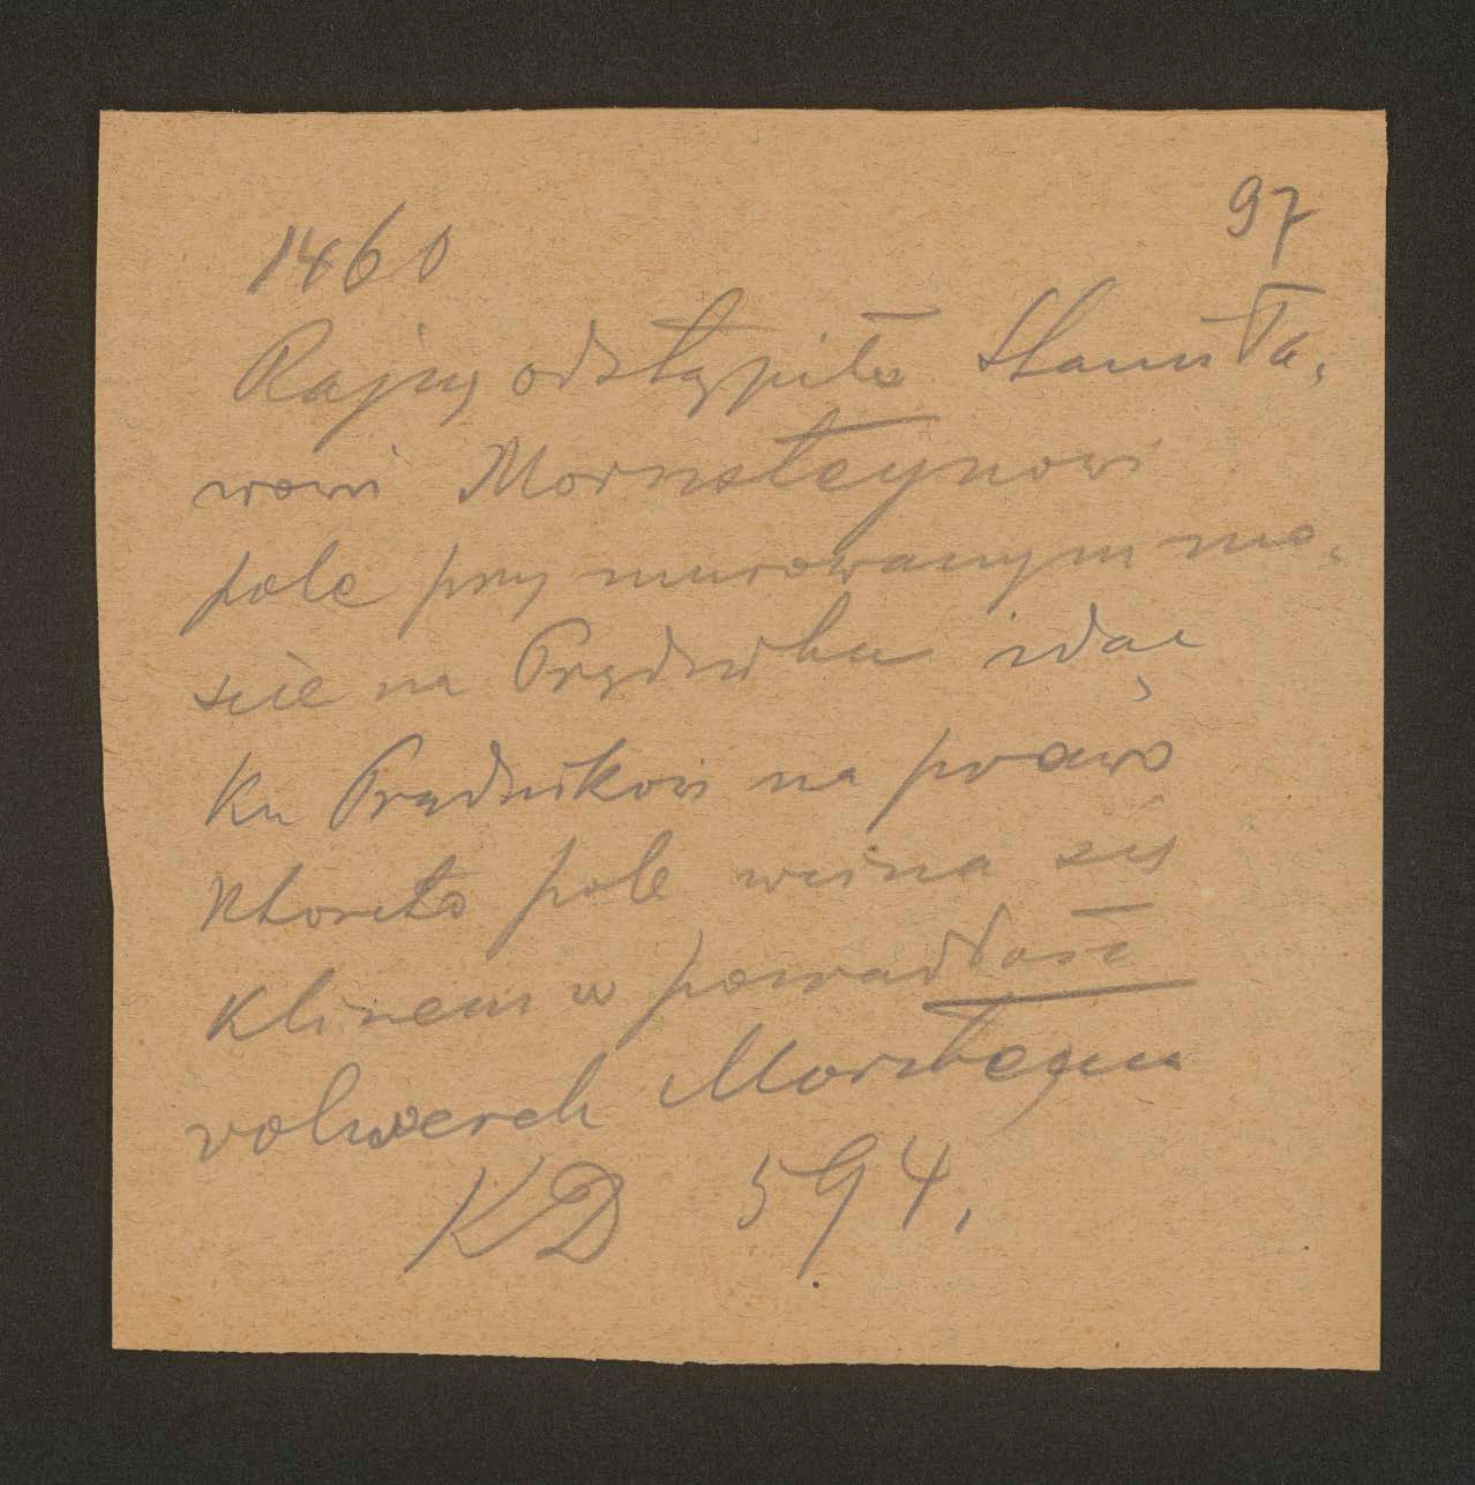 97
1460
Rajcy odstąpiła Stanisła,
wowi Mornsteynowi
pole przy murowanym mo,
scie na Prądniku idąc
Ku Prądnikow na prawo
Któreto pole wcina się
Klinem w posiadłość
volwerch Morsteyna
KD 594,